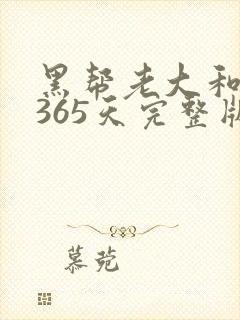 黑帮老大和
365天完整版
慕菀